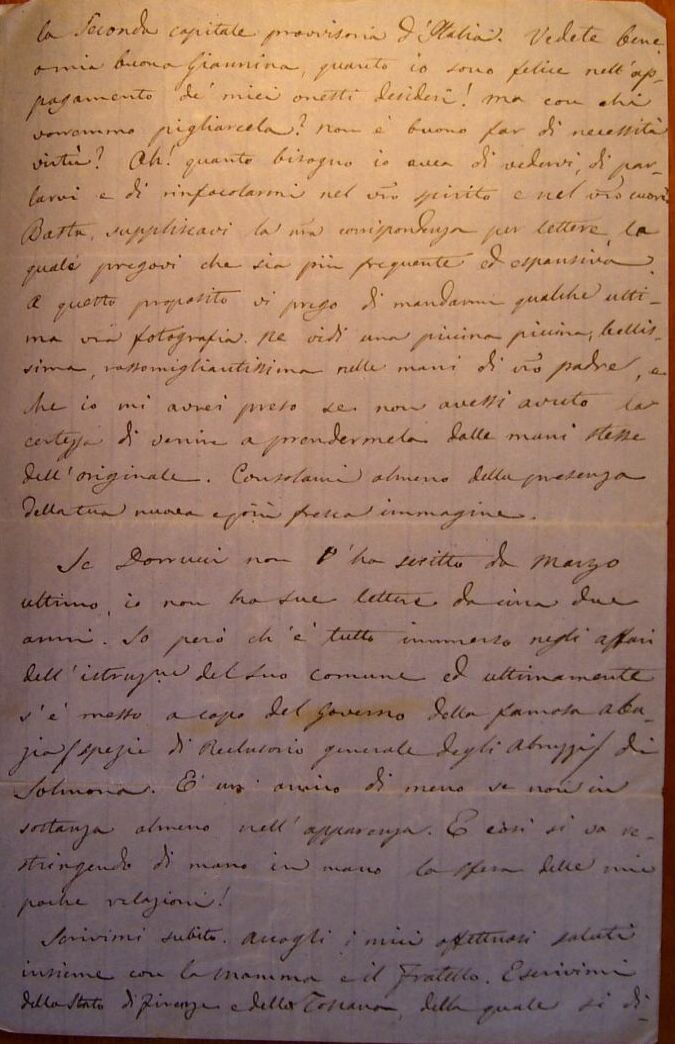 la Seconda capitale provvisoria d'Italia. Vedete bene
o mia buona Giannina, quanto io sono felice nell'ap-
pagamento de' miei onesti desiderî! Ma con chi
vorremmo pigliarcela? Non è buono far di necessità
virtù? Ah! quanto bisogno io avea di vedervi, di par-
larvi e di rinfocolarmi nel vro spirito e nel vro cuore
Basta, supplitecavi la vra corrispondenza per lettere, la
quale pregovi che sia più frequente ed espansiva.
A questo proposito vi prego di mandarmi qualche ulti-
ma vra fotografia. Ne vidi una picina picina, bellis-
sima, rassomigliantissima nelle mani di vro padre, e
che io mi avrei preso se non avessi avuto la
certezza di venire a prendermela dalle mani stesse
dell'originale. Consolami almeno della presenza
della tua nuova e più fresca immagine.
Se Dorrucci non t'ha scritto da Marzo
ultimo, io non ho sue lettere da circa due
anni. So però ch'è tutto immerso negli affari
dell'istruzne del suo comune ed ultimamente
s'è messo a capo del Governo della famosa Aba-
zia/spezie di Reclusorio generale degli Abruzzi/ di
Solmona. E' un amico di meno se non in
sostanza almeno nell'apparenza. E così si va re-
stringendo di mano in mano la sfera delle mie
poche relazioni!
Scrivimi subito. Accogli i miei affettuosi saluti
insieme con la Mamma e il Fratello. E scrivimi
dello Stato di Firenze e della Toscana, della quale si di-